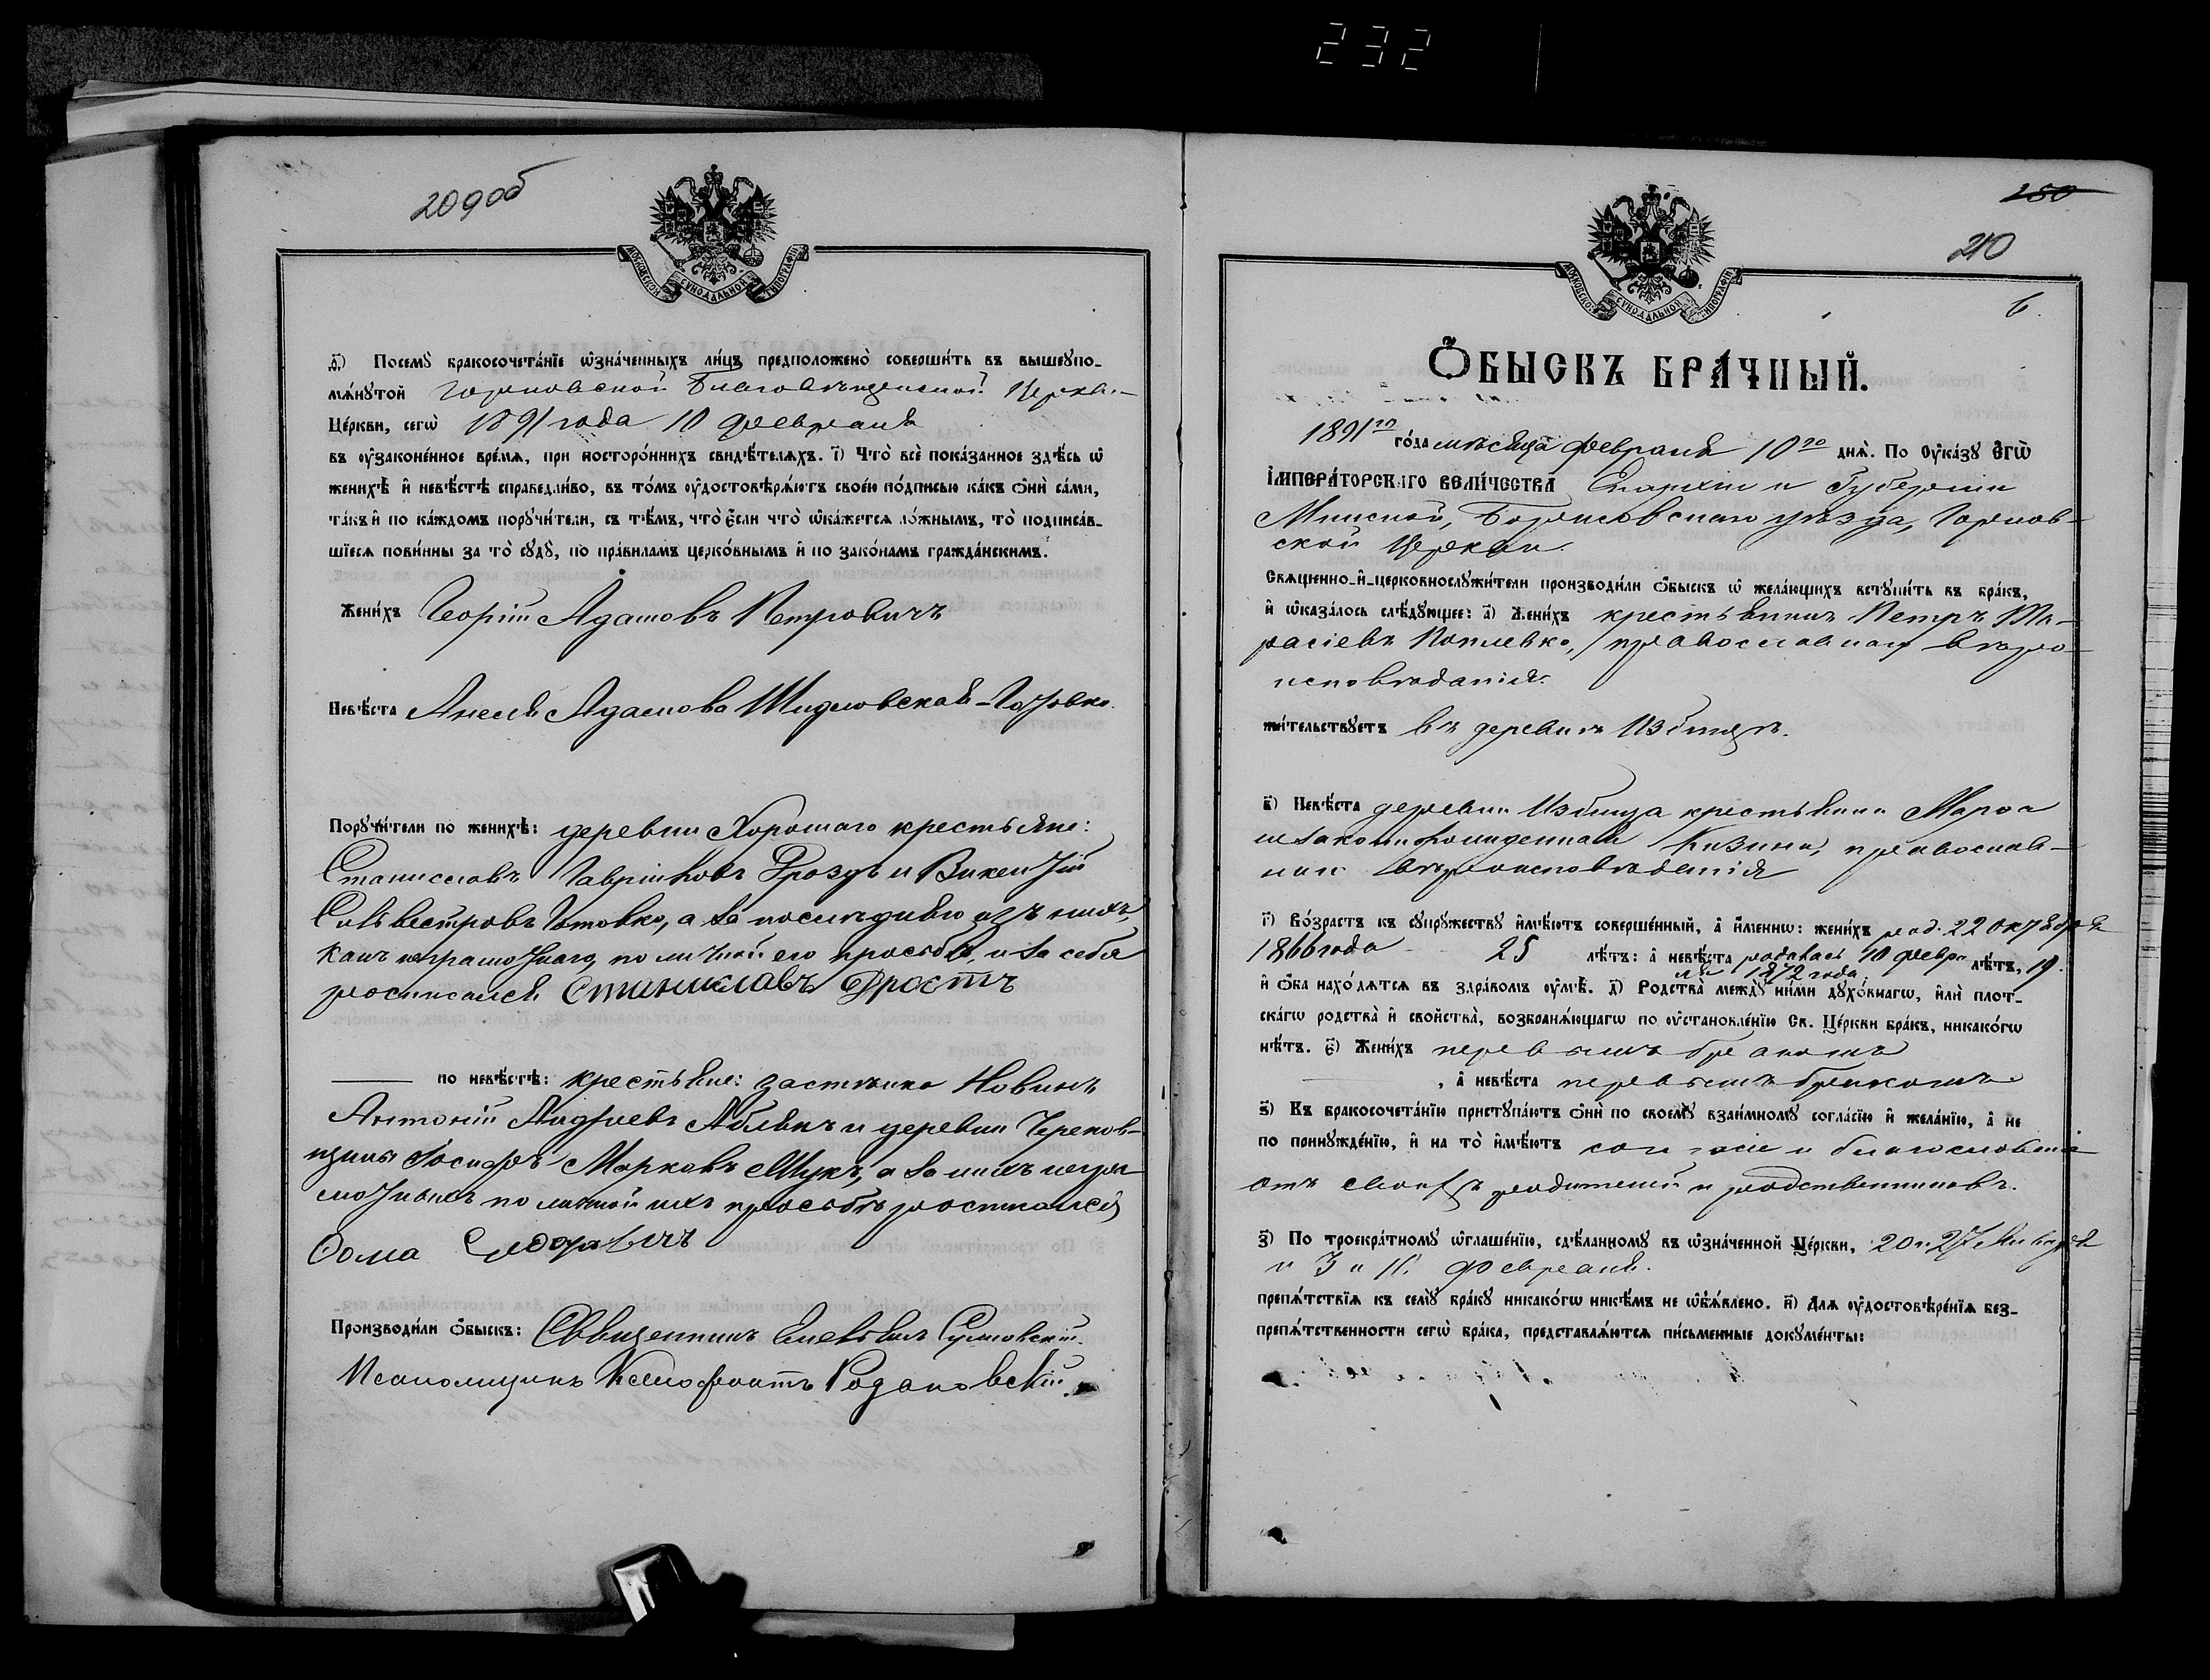 232
209об
МОСКОВСКОЙ СѴНОДАЛЬНОЙ ТИПОГРАФІИ
ѳ҃) Посемꙋ̀ бракосочета́нїе ѡ҆зна́ченныхъ ли́цъ предположено̀ соверши́ть въ вышеꙋпо-
мѧ́нꙋтой Горковской Благовѣщенской Церкви
Це́ркви, сегѡ̀ 1891 года 10 Февраля
въ ᲂу҆законе́нное вре́мѧ, при посторо́ннихъ свидѣ́телѧхъ. і҃) Что̀ всѐ пока́занное здѣ́сь ѡ҆
женихѣ̀ и҆ невѣ́стѣ справедли́во, въ то́мъ ᲂу҆достовѣрѧ́ютъ свое́ю по́дписью ка́къ ѻ҆нѝ са́ми,
та́къ и҆ по ка́ждомъ порꙋчи́тели, съ тѣ́мъ, что̀ є҆́сли что̀ ѡ҆ка́жетсѧ ло́жнымъ, то̀ подписа́в-
шїесѧ пови́нны за то̀ сꙋдꙋ̀, по пра́виламъ церко́внымъ и҆ по зако́намъ гражда́нскимъ.
Жени́хъ Георгій Адамовъ Петровичъ
Невѣ́ста Анеля Адамова Шидловская-Готовко.
Порꙋчи́тели по женихѣ̀: деревни Хорошаго крестьяне:
Станиславъ Гавріиловъ Дроздъ и Викентій
Сильвестровъ Готовко, а за послѣдняго изъ нихъ,
какъ неграмотнаго, по личной его просьбѣ, и за себя
росписался Станиславъ Дростъ
по невѣ́стѣ: крестьяне: застѣнка Новинъ
Антоній Андреевъ Абевичъ и деревни Черков-
щины Іосифъ Марковъ Шукъ, а за нихъ негра
мотныхъ по личной ихъ просьбѣ росписался
Ѳома Сидоровичъ
Производи́ли ѻ҆́быскъ: Священникъ Сулковскій.
Псаломщикъ Ксенофонтъ Родаковскій.
180
210
МОСКОВСКОЙ СѴНОДАЛЬНОЙ ТИПОГРАФІИ
6.
Ѻ҆́БЫСКЪ БРА́ЧНЫЙ.
1891го го́да мѣсяца Февраля 10го днѧ̀. По Оу҆ка́зꙋ Є҆гѡ̀
І҆МПЕРА́ТОРСКАГО ВЕЛИ́ЧЕСТВА Епархіи и Губерніи
Минской, Борисовскаго уѣзда, Горков-
ской Церкви.
Сщ҃е́нно-и҆-церковнослꙋжи́тели производи́ли ѻ҆́быскъ ѡ҆ жела́ющихъ встꙋпи́ть въ бра́къ,
и҆ ѡ҆каза́лось слѣ́дꙋющее: а҃) Жени́хъ крестьянинъ Петръ Та-
расіевъ Коплевко, православнаго вѣро-
исповѣданія.
жи́тельствꙋетъ въ деревнѣ Избищѣ.
в҃) Невѣ́ста деревни Избища крестьянка Марѳа
незаконнорожденная Кизина, православ-
наго вѣроисповѣданія
г҃) Во́зрастъ къ сꙋпрꙋ́жествꙋ и҆мѣ́ютъ соверше́нный, а҆ и҆́меннѡ: жени́хъ род. 22 Октября
1866 года 25 лѣ́тъ: а҆ невѣ́ста родилась 10 февра лѣ́тъ, 19.
ля 1872 года.
и҆ ѻ҆́ба нахо́дѧтсѧ въ здра́вомъ ᲂу҆мѣ̀. д҃) Родства̀ междꙋ̀ ни́ми дꙋхо́внагѡ, и҆лѝ плот-
ска́гѡ родства̀ и҆ сво́йства, возбранѧ́ющагѡ по ᲂу҆становле́нїю Св. Це́ркви бра́къ, никако́гѡ
нѣ́тъ. є҃) Жени́хъ первымъ бракомъ
, а҆ невѣ́ста первымъ бракомъ
ѕ҃) Къ бракосочета́нїю пристꙋпа́ютъ ѻ҆нѝ по своемꙋ̀ взаи́мномꙋ согла́сїю и҆ жела́нїю, а҆ не
по принꙋжде́нїю, и҆ на то̀ и҆мѣ́ютъ согласіе и благословеніе
отъ своихъ родителей и родственниковъ.
з҃) По троекра́тномꙋ ѡ҆глаше́нїю, сдѣ́ланномꙋ въ ѡ҆зна́ченной Це́ркви, 20 и 27 Января
и 3 и Февраля.
препѧ́тствїѧ къ семꙋ̀ бра́кꙋ никако́гѡ никѣ́мъ не ѡ҆бъѧ́влено. и҃) Длѧ ᲂу҆достовѣре́нїѧ без-
препѧ́тственности сегѡ̀ бра́ка, представлѧ́ютсѧ пи́сьменные докꙋме́нты: